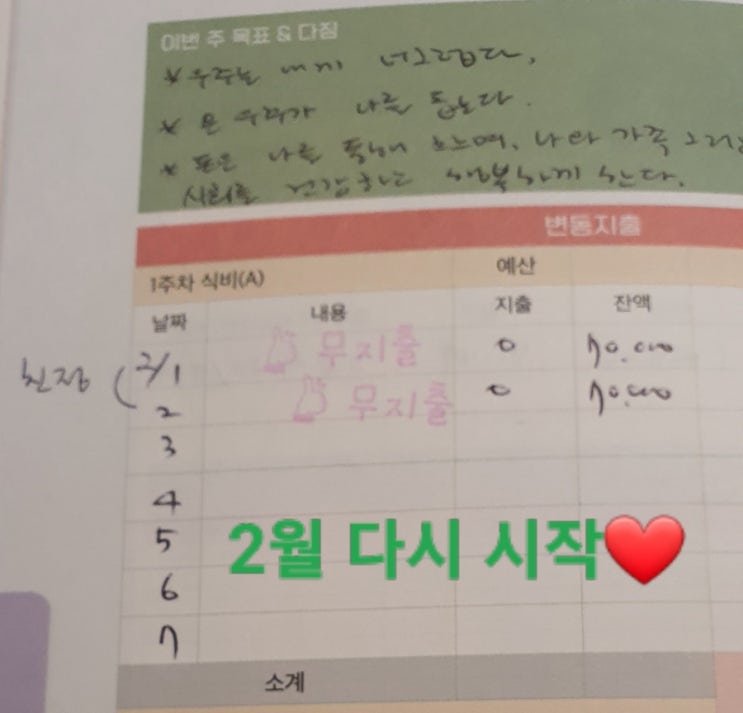 이번 주 목표 & 다짐
* 우주는 내게 너그럽다.
* 온 우주가 나를 돕는다.
* 돈은 나를 통해 흐르며, 나와 가족 그리고
사회를 건강하고 행복하게 한다.
변동지출
1주차 식비(A) 예산
날짜 내용 지출 잔액
친정 2/1 무지출 0 70,000
2 무지출 0 70,000
3
4
5 2월 다시 시작❤️
6
7
소계